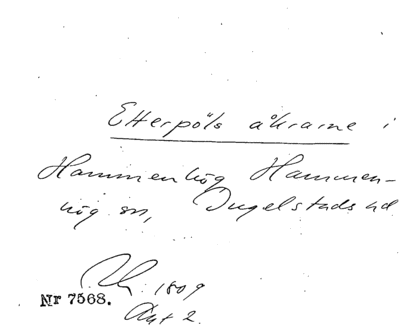 Etterpöls åkrarne i
Hammenhög Hammen-
hög sn, Ingelstads hd.
1809
Nr 7568.
Akt 2.